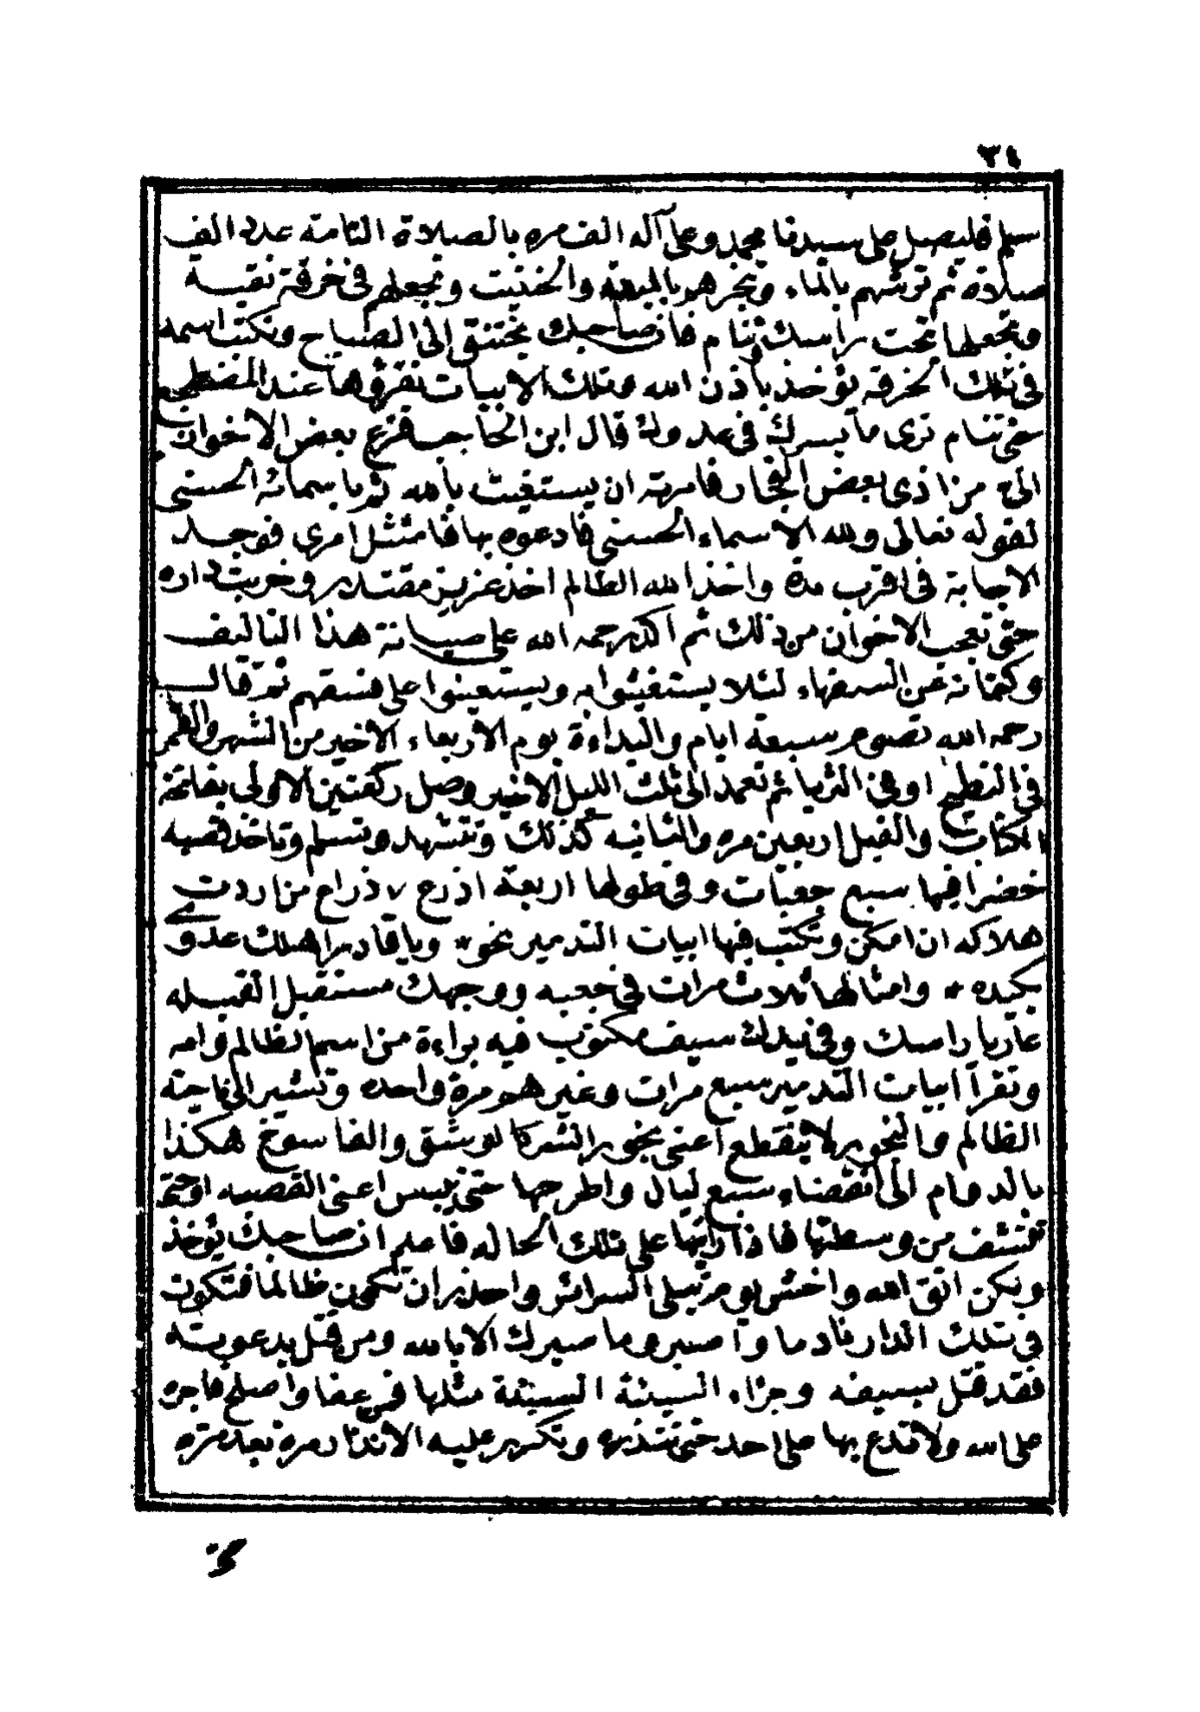 ٣٤
سم فليصل على سيدنا محمد وعلى آله الف مره بالصلاة التامة عدد الف
صلاة ثم ترشهم بالماء وتبخر هو بالميعة والحنتيت وتجعلهم في خرقة نقية
وتجعلها تحت راسك وتنام فان صاحبك يختنق إلى الصباح وتكتب اسمه
في تلك الخرقه يؤخذ باذن الله وتلك الابيات تقرؤها عند المضطجع
حتى تنام ترى ما يسرك في عدوك قال ابن الحاجب فزع بعض الاخوان
الي من اذى بعض الفجار فامرته ان يستغيث بالله ثم باسمائه الحسنى
لقوله تعالى ولله الاسماء الحسنى فادعوه بها فامتثل امرى فوجد
الاجابة في اقرب مدة واخذ الله الظالم اخذ عزيز مقتدر وخربت داره
حتى تعجب الاخوان من ذلك ثم اكد رحمه الله على صيانة هذا التاليف
وكتمانه عن السفهاء لئلا يستغيثوا به ويستعينوا على فسقهم ثم قال
رحمه الله تصوم سبعة ايام والبداءة يوم الاربعاء الاخير من الشهر والقمر
في النطيح او في الثريا ثم تعمد الى ثلث الليل الاخير وصل ركعتين الاولى بفاتحة
الكتاب والفيل اربعين مره والثانيه كذلك وتتشهد وتسلم وتاخذ قصبه
خضرا فيها سبع جعبات وفي طولها اربعة اذرع ٧ ذراع من اردت
هلاكه ان امكن وتكتب فيها ابيات التدمير نحو * ويا قادر اهلك عدو
بكيده * وامثالها ثلاث مرات في جعبه ووجهك مستقبل القبله
عاريا راسك وفي يدك سيف مكتوب فيه براءة من اسم الظالم وامه
وتقرأ ابيات التدمير سبع مرات وغير هو مرة واحده وتشير الى ناحية
الظالم والبخور لا ينقطع اعنى بخور الشر كالوشق والفاسوخ هكذا
بالدوام الى انقضاء سبع ليال واطرحها حتى تيبس اعنى القصبه او حتى
تنشف من وسطها فاذا رايتها على تلك الحاله فاعلم ان صاحبك يؤخذ
ولكن اتق الله واخش يوم تبلى السرائر واحذر ان تكون ظالما فتكون
في تلك الدار نادما واصبر وما صبرك الا بالله ومن قتل بدعوته
فقد قتل بسيفه وجزاء السيئة السيئة مثلها فمن عفا واصلح فاجره
على الله ولا تدع بها على احد حتى تنذره وتكرر عليه الانذار مرة بعد مره